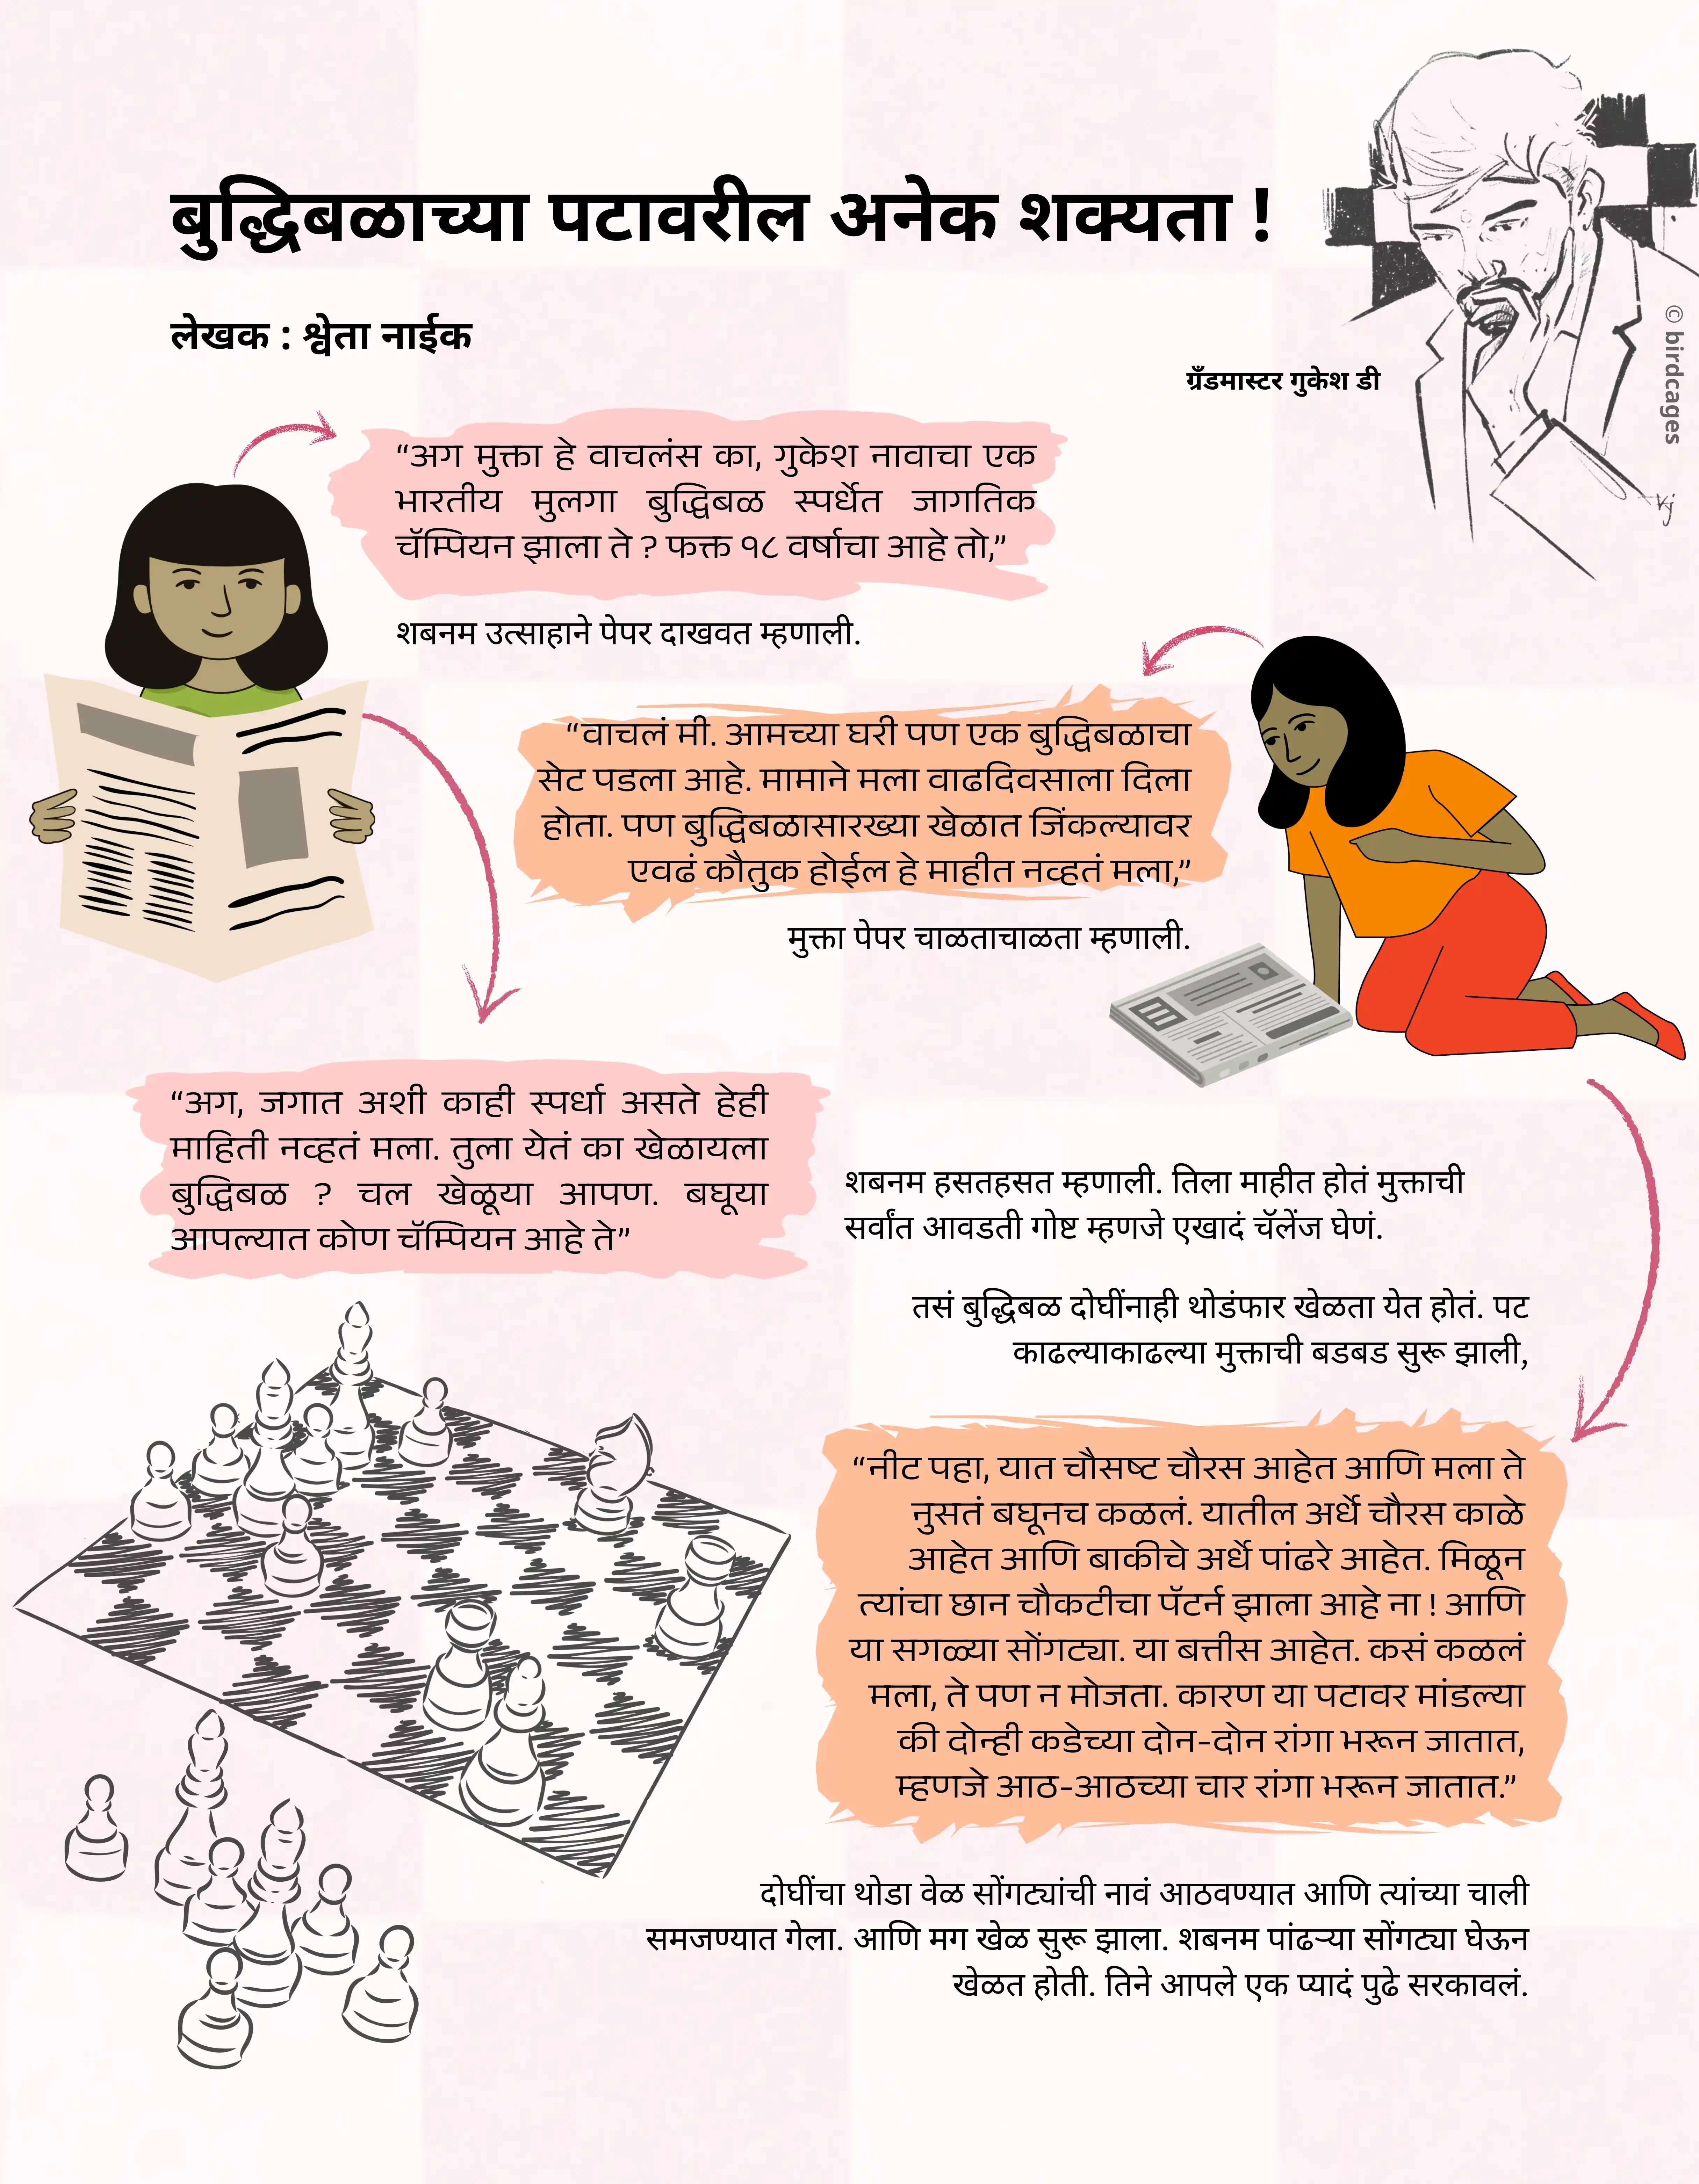 बुद्धिबळाच्या पटावरील अनेक शक्यता !
लेखक : श्वेता नाईक
ग्रँडमास्टर गुकेश डी
© birdcages
Vj
“अग मुक्ता हे वाचलंस का, गुकेश नावाचा एक
भारतीय मुलगा बुद्धिबळ स्पर्धेत जागतिक
चॅम्पियन झाला ते ? फक्त १८ वर्षाचा आहे तो,”
शबनम उत्साहाने पेपर दाखवत म्हणाली.
“वाचलं मी. आमच्या घरी पण एक बुद्धिबळाचा
सेट पडला आहे. मामाने मला वाढदिवसाला दिला
होता. पण बुद्धिबळासारख्या खेळात जिंकल्यावर
एवढं कौतुक होईल हे माहीत नव्हतं मला,”
मुक्ता पेपर चाळताचाळता म्हणाली.
“अग, जगात अशी काही स्पर्धा असते हेही
माहिती नव्हतं मला. तुला येतं का खेळायला
बुद्धिबळ ? चल खेळूया आपण. बघूया
आपल्यात कोण चॅम्पियन आहे ते”
शबनम हसतहसत म्हणाली. तिला माहीत होतं मुक्ताची
सर्वांत आवडती गोष्ट म्हणजे एखादं चॅलेंज घेणं.
तसं बुद्धिबळ दोघींनाही थोडंफार खेळता येत होतं. पट
काढल्याकाढल्या मुक्ताची बडबड सुरू झाली,
“नीट पहा, यात चौसष्ट चौरस आहेत आणि मला ते
नुसतं बघूनच कळलं. यातील अर्धे चौरस काळे
आहेत आणि बाकीचे अर्धे पांढरे आहेत. मिळून
त्यांचा छान चौकटीचा पॅटर्न झाला आहे ना ! आणि
या सगळ्या सोंगट्या. या बत्तीस आहेत. कसं कळलं
मला, ते पण न मोजता. कारण या पटावर मांडल्या
की दोन्ही कडेच्या दोन-दोन रांगा भरून जातात,
म्हणजे आठ-आठच्या चार रांगा भरून जातात.”
दोघींचा थोडा वेळ सोंगट्यांची नावं आठवण्यात आणि त्यांच्या चाली
समजण्यात गेला. आणि मग खेळ सुरू झाला. शबनम पांढऱ्या सोंगट्या घेऊन
खेळत होती. तिने आपले एक प्यादं पुढे सरकावलं.